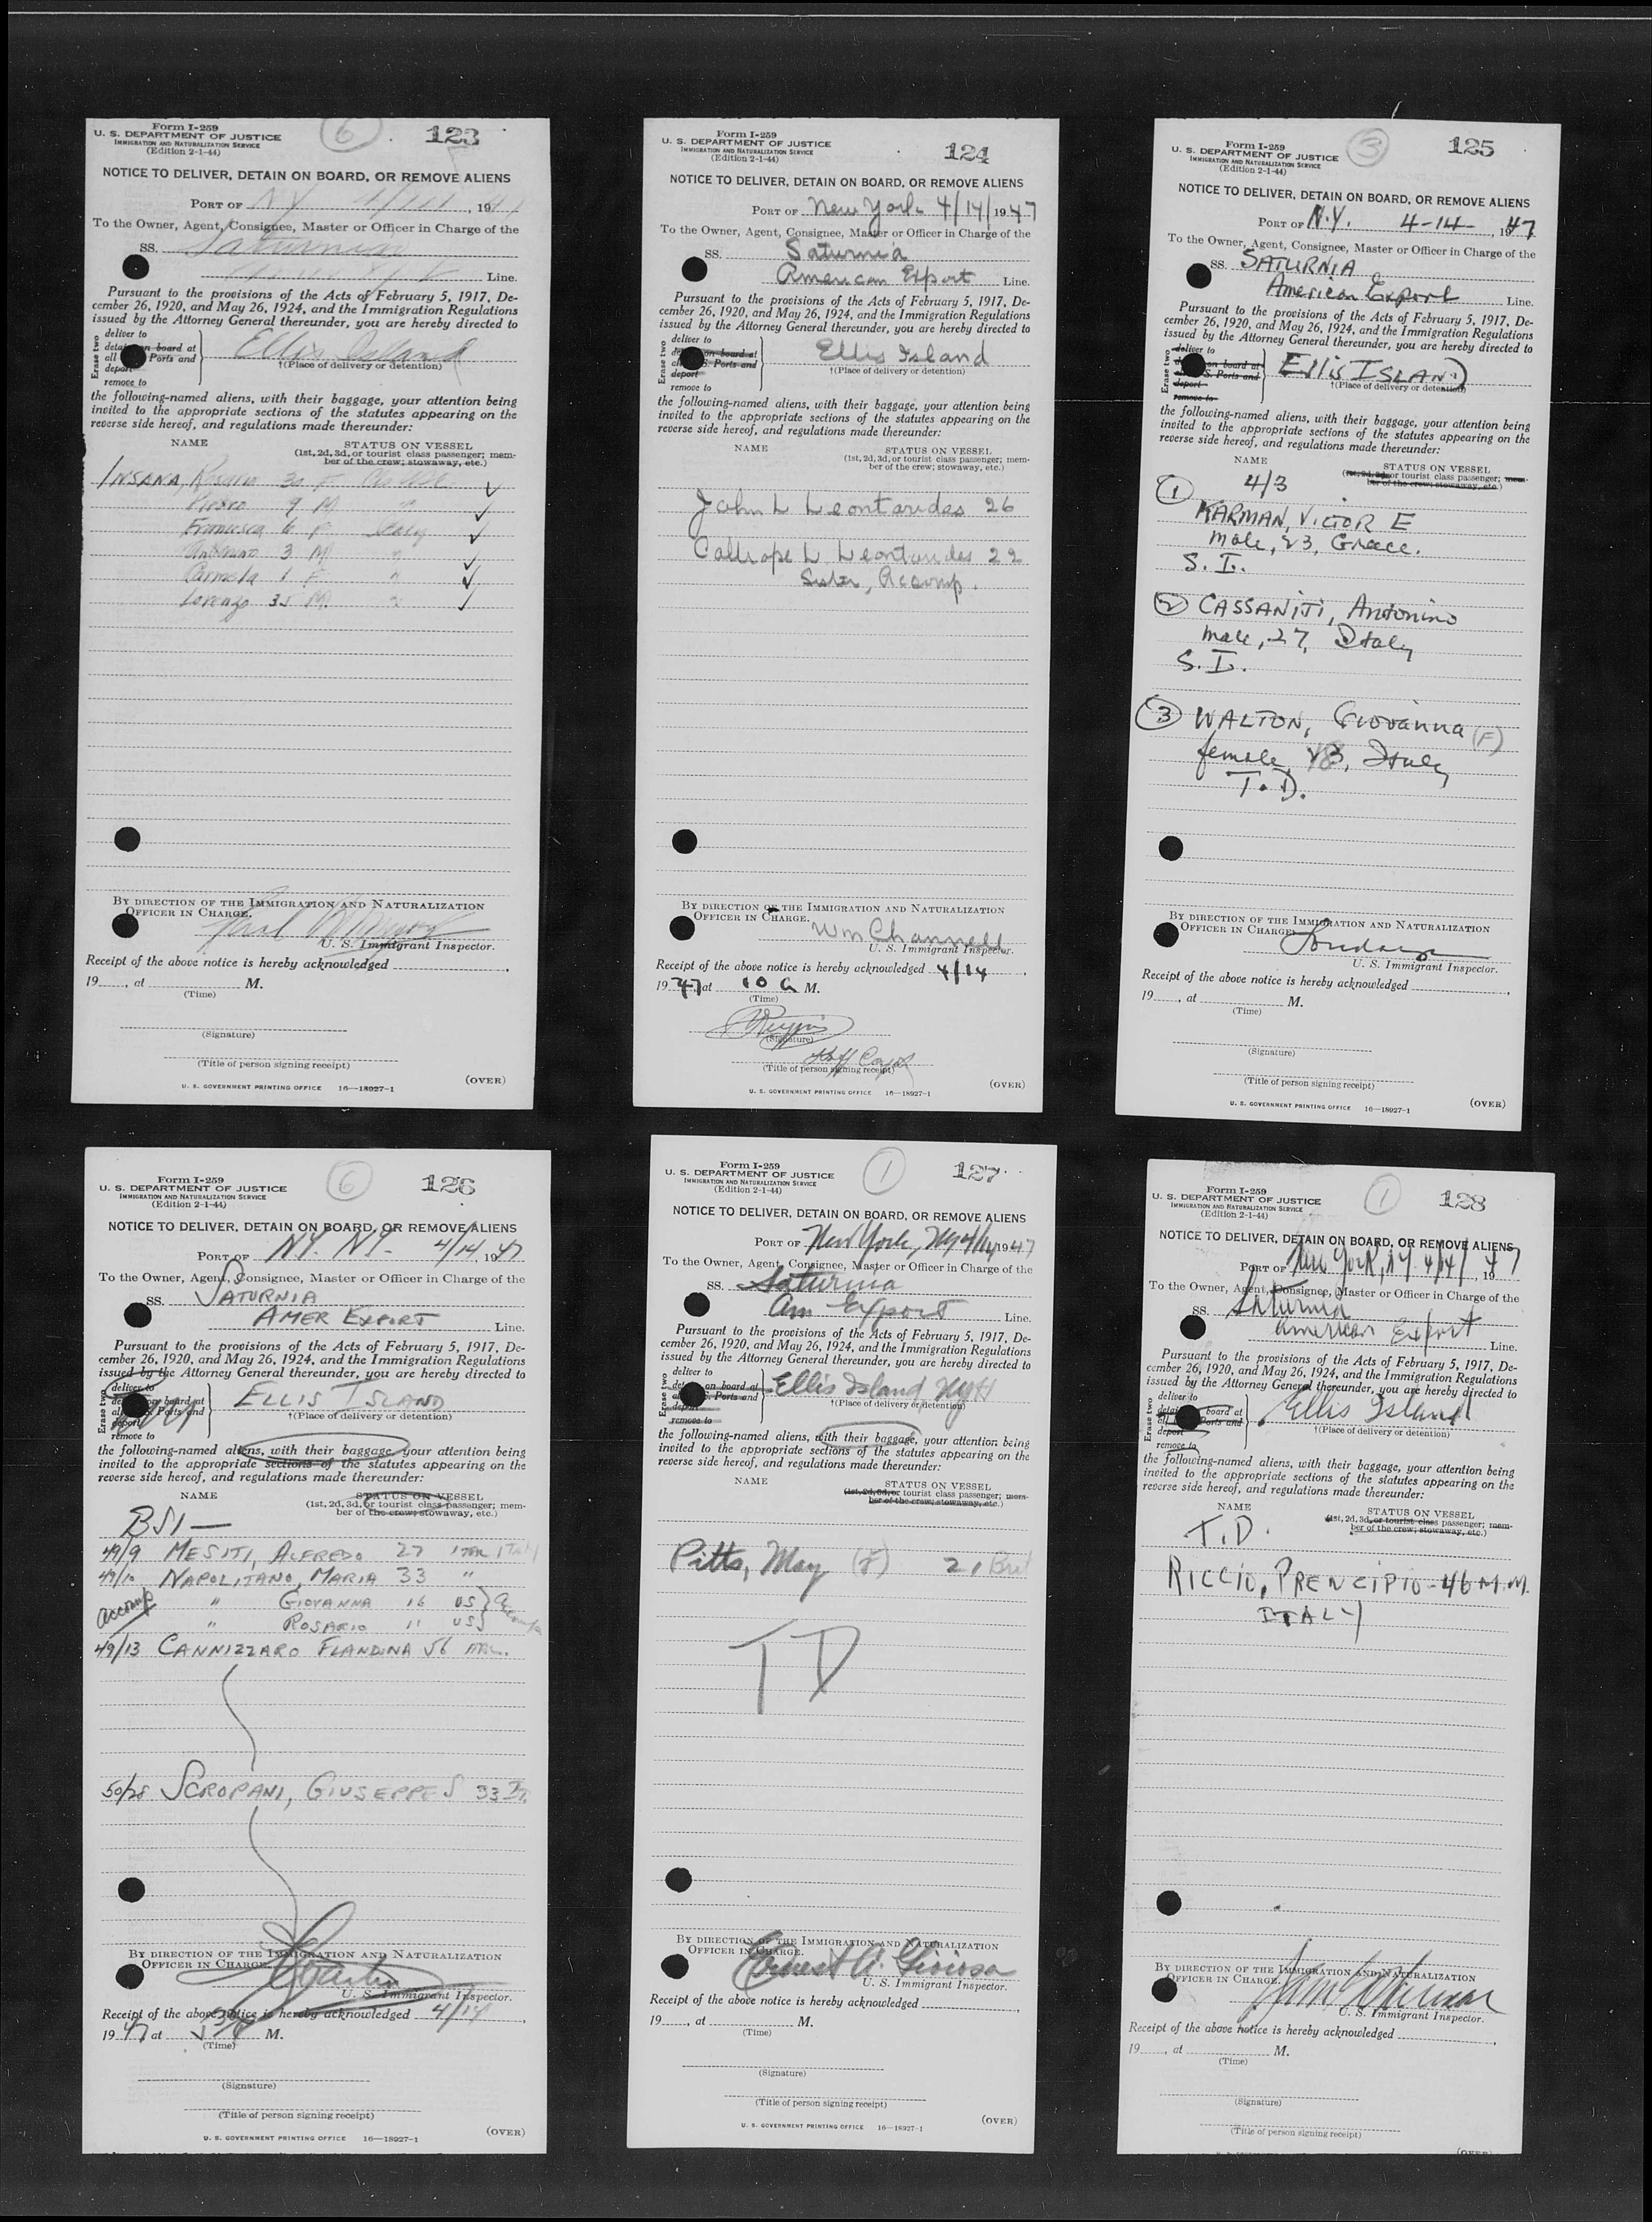 Form I-259
U. S. DEPARTMENT OF JUSTICE
IMMIGRATION AND NATURALIZATION SERVICE
(Edition 2-1-44)
6
123
NOTICE TO DELIVER, DETAIN ON BOARD, OR REMOVE ALIENS
PORT OF NY, 19
To the Owner, Agent, Consignee, Master or Officer in Charge of the
SS. Saturnia
Line.
Pursuant to the provisions of the Acts of February 5, 1917, De-
cember 26, 1920, and May 26, 1924, and the Immigration Regulations
issued by the Attorney General thereunder, you are hereby directed to
Erase two
deliver to
detain on board at
all Ports and
deport
remove to
Ellis Island
†(Place of delivery or detention)
the following-named aliens, with their baggage, your attention being
invited to the appropriate sections of the statutes appearing on the
reverse side hereof, and regulations made thereunder:
NAME
STATUS ON VESSEL
(1st, 2d, 3d, or tourist class passenger; mem-
ber of the crew; stowaway, etc.)
INSANA, Rosario 30 F
9 M "
Francesca 6 F Italy
3 M "
Carmela 1 F "
Lorenzo 35 M "
BY DIRECTION OF THE IMMIGRATION AND NATURALIZATION
OFFICER IN CHARGE.
U. S. Immigrant Inspector.
Receipt of the above notice is hereby acknowledged
19, at M.
(Time)
(Signature)
(Title of person signing receipt)
U. S. GOVERNMENT PRINTING OFFICE 16—18927-1
(OVER)
Form I-259
U. S. DEPARTMENT OF JUSTICE
IMMIGRATION AND NATURALIZATION SERVICE
(Edition 2-1-44)
124
NOTICE TO DELIVER, DETAIN ON BOARD, OR REMOVE ALIENS
PORT OF New York 4/14/1947
To the Owner, Agent, Consignee, Master or Officer in Charge of the
SS. Saturnia
American Export Line.
Pursuant to the provisions of the Acts of February 5, 1917, De-
cember 26, 1920, and May 26, 1924, and the Immigration Regulations
issued by the Attorney General thereunder, you are hereby directed to
Erase two
deliver to
on board at
S. Ports and
deport
remove to
Ellis Island
†(Place of delivery or detention)
the following-named aliens, with their baggage, your attention being
invited to the appropriate sections of the statutes appearing on the
reverse side hereof, and regulations made thereunder:
NAME
STATUS ON VESSEL
(1st, 2d, 3d, or tourist class passenger; mem-
ber of the crew; stowaway, etc.)
John L Leontarides 26
Calliope L Leontarides 22
Sister, Accomp.
BY DIRECTION OF THE IMMIGRATION AND NATURALIZATION
OFFICER IN CHARGE.
Wm Channell
U. S. Immigrant Inspector.
Receipt of the above notice is hereby acknowledged 4/14
1947, at 10 A M.
(Time)
(Signature)
(Title of person signing receipt)
U. S. GOVERNMENT PRINTING OFFICE 16—18927-1
(OVER)
Form I-259
U. S. DEPARTMENT OF JUSTICE
IMMIGRATION AND NATURALIZATION SERVICE
(Edition 2-1-44)
3
125
NOTICE TO DELIVER, DETAIN ON BOARD, OR REMOVE ALIENS
PORT OF N.Y. 4-14-, 1947
To the Owner, Agent, Consignee, Master or Officer in Charge of the
SS. SATURNIA
American Export Line.
Pursuant to the provisions of the Acts of February 5, 1917, De-
cember 26, 1920, and May 26, 1924, and the Immigration Regulations
issued by the Attorney General thereunder, you are hereby directed to
Erase two
deliver to
on board at
S. Ports and
deport
remove to
Ellis ISLAND
†(Place of delivery or detention)
the following-named aliens, with their baggage, your attention being
invited to the appropriate sections of the statutes appearing on the
reverse side hereof, and regulations made thereunder:
NAME
STATUS ON VESSEL
(1st, 2d, 3d, or tourist class passenger; mem-
ber of the crew; stowaway, etc.)
4/3
1 KARMAN, VICTOR E
Male, 23, Greece.
S. I.
2 CASSANITI, Antonino
Male, 27, Italy
S. I.
3 WALTON, Giovanna (F)
female, Italy
T.D.
BY DIRECTION OF THE IMMIGRATION AND NATURALIZATION
OFFICER IN CHARGE.
U. S. Immigrant Inspector.
Receipt of the above notice is hereby acknowledged
19, at M.
(Time)
(Signature)
(Title of person signing receipt)
U. S. GOVERNMENT PRINTING OFFICE 16—18927-1
(OVER)
Form I-259
U. S. DEPARTMENT OF JUSTICE
IMMIGRATION AND NATURALIZATION SERVICE
(Edition 2-1-44)
6
126
NOTICE TO DELIVER, DETAIN ON BOARD, OR REMOVE ALIENS
PORT OF N.Y. N.Y. 4/14, 1947
To the Owner, Agent, Consignee, Master or Officer in Charge of the
SS. SATURNIA
AMER EXPORT Line.
Pursuant to the provisions of the Acts of February 5, 1917, De-
cember 26, 1920, and May 26, 1924, and the Immigration Regulations
issued by the Attorney General thereunder, you are hereby directed to
Erase two
deliver to
on board at
Ports and
deport
remove to
ELLIS ISLAND
†(Place of delivery or detention)
the following-named aliens, with their baggage, your attention being
invited to the appropriate sections of the statutes appearing on the
reverse side hereof, and regulations made thereunder:
NAME
STATUS ON VESSEL
(1st, 2d, 3d, or tourist class passenger; mem-
ber of the crew; stowaway, etc.)
BSI —
49/9 MESITI, ALFREDO 27 ITAL
49/10 NAPOLITANO, MARIA 33 "
accomp " GIOVANNA 16 US
" ROSARIO 11 US
49/13 CANNIZZARO FLANDINA 56 ITAL.
50/28 SCROPANI, GIUSEPPE S 33 It.
BY DIRECTION OF THE IMMIGRATION AND NATURALIZATION
OFFICER IN CHARGE.
U. S. Immigrant Inspector.
Receipt of the above notice is hereby acknowledged 4/14
1947, at M.
(Time)
(Signature)
(Title of person signing receipt)
U. S. GOVERNMENT PRINTING OFFICE 16—18927-1
(OVER)
Form I-259
U. S. DEPARTMENT OF JUSTICE
IMMIGRATION AND NATURALIZATION SERVICE
(Edition 2-1-44)
1
127
NOTICE TO DELIVER, DETAIN ON BOARD, OR REMOVE ALIENS
PORT OF New York, NY 4/14/1947
To the Owner, Agent, Consignee, Master or Officer in Charge of the
SS. Saturnia
Am Export Line.
Pursuant to the provisions of the Acts of February 5, 1917, De-
cember 26, 1920, and May 26, 1924, and the Immigration Regulations
issued by the Attorney General thereunder, you are hereby directed to
Erase two
deliver to
on board at
S. Ports and
deport
remove to
Ellis Island NYH
†(Place of delivery or detention)
the following-named aliens, with their baggage, your attention being
invited to the appropriate sections of the statutes appearing on the
reverse side hereof, and regulations made thereunder:
NAME
STATUS ON VESSEL
(1st, 2d, 3d, or tourist class passenger; mem-
ber of the crew; stowaway, etc.)
Pitts, May (F) 21 Brit
TD
BY DIRECTION OF THE IMMIGRATION AND NATURALIZATION
OFFICER IN CHARGE.
Ernest A. Gioiosa
U. S. Immigrant Inspector.
Receipt of the above notice is hereby acknowledged
19, at M.
(Time)
(Signature)
(Title of person signing receipt)
U. S. GOVERNMENT PRINTING OFFICE 16—18927-1
(OVER)
Form I-259
U. S. DEPARTMENT OF JUSTICE
IMMIGRATION AND NATURALIZATION SERVICE
(Edition 2-1-44)
1
128
NOTICE TO DELIVER, DETAIN ON BOARD, OR REMOVE ALIENS
PORT OF New York, NY 4/14/, 1947
To the Owner, Agent, Consignee, Master or Officer in Charge of the
SS. Saturnia
American Export
Line.
Pursuant to the provisions of the Acts of February 5, 1917, De-
cember 26, 1920, and May 26, 1924, and the Immigration Regulations
issued by the Attorney General thereunder, you are hereby directed to
Erase two
deliver to
detain board at
all Ports and
deport
remove to
Ellis Island
†(Place of delivery or detention)
the following-named aliens, with their baggage, your attention being
invited to the appropriate sections of the statutes appearing on the
reverse side hereof, and regulations made thereunder:
NAME
STATUS ON VESSEL
(1st, 2d, 3d, or tourist class passenger; mem-
ber of the crew; stowaway, etc.)
T.D.
RICCIO, PRENCIPIO - 46 M.M.
ITALY
BY DIRECTION OF THE IMMIGRATION AND NATURALIZATION
OFFICER IN CHARGE.
U. S. Immigrant Inspector.
Receipt of the above notice is hereby acknowledged
19, at M.
(Time)
(Signature)
(Title of person signing receipt)
(OVER)